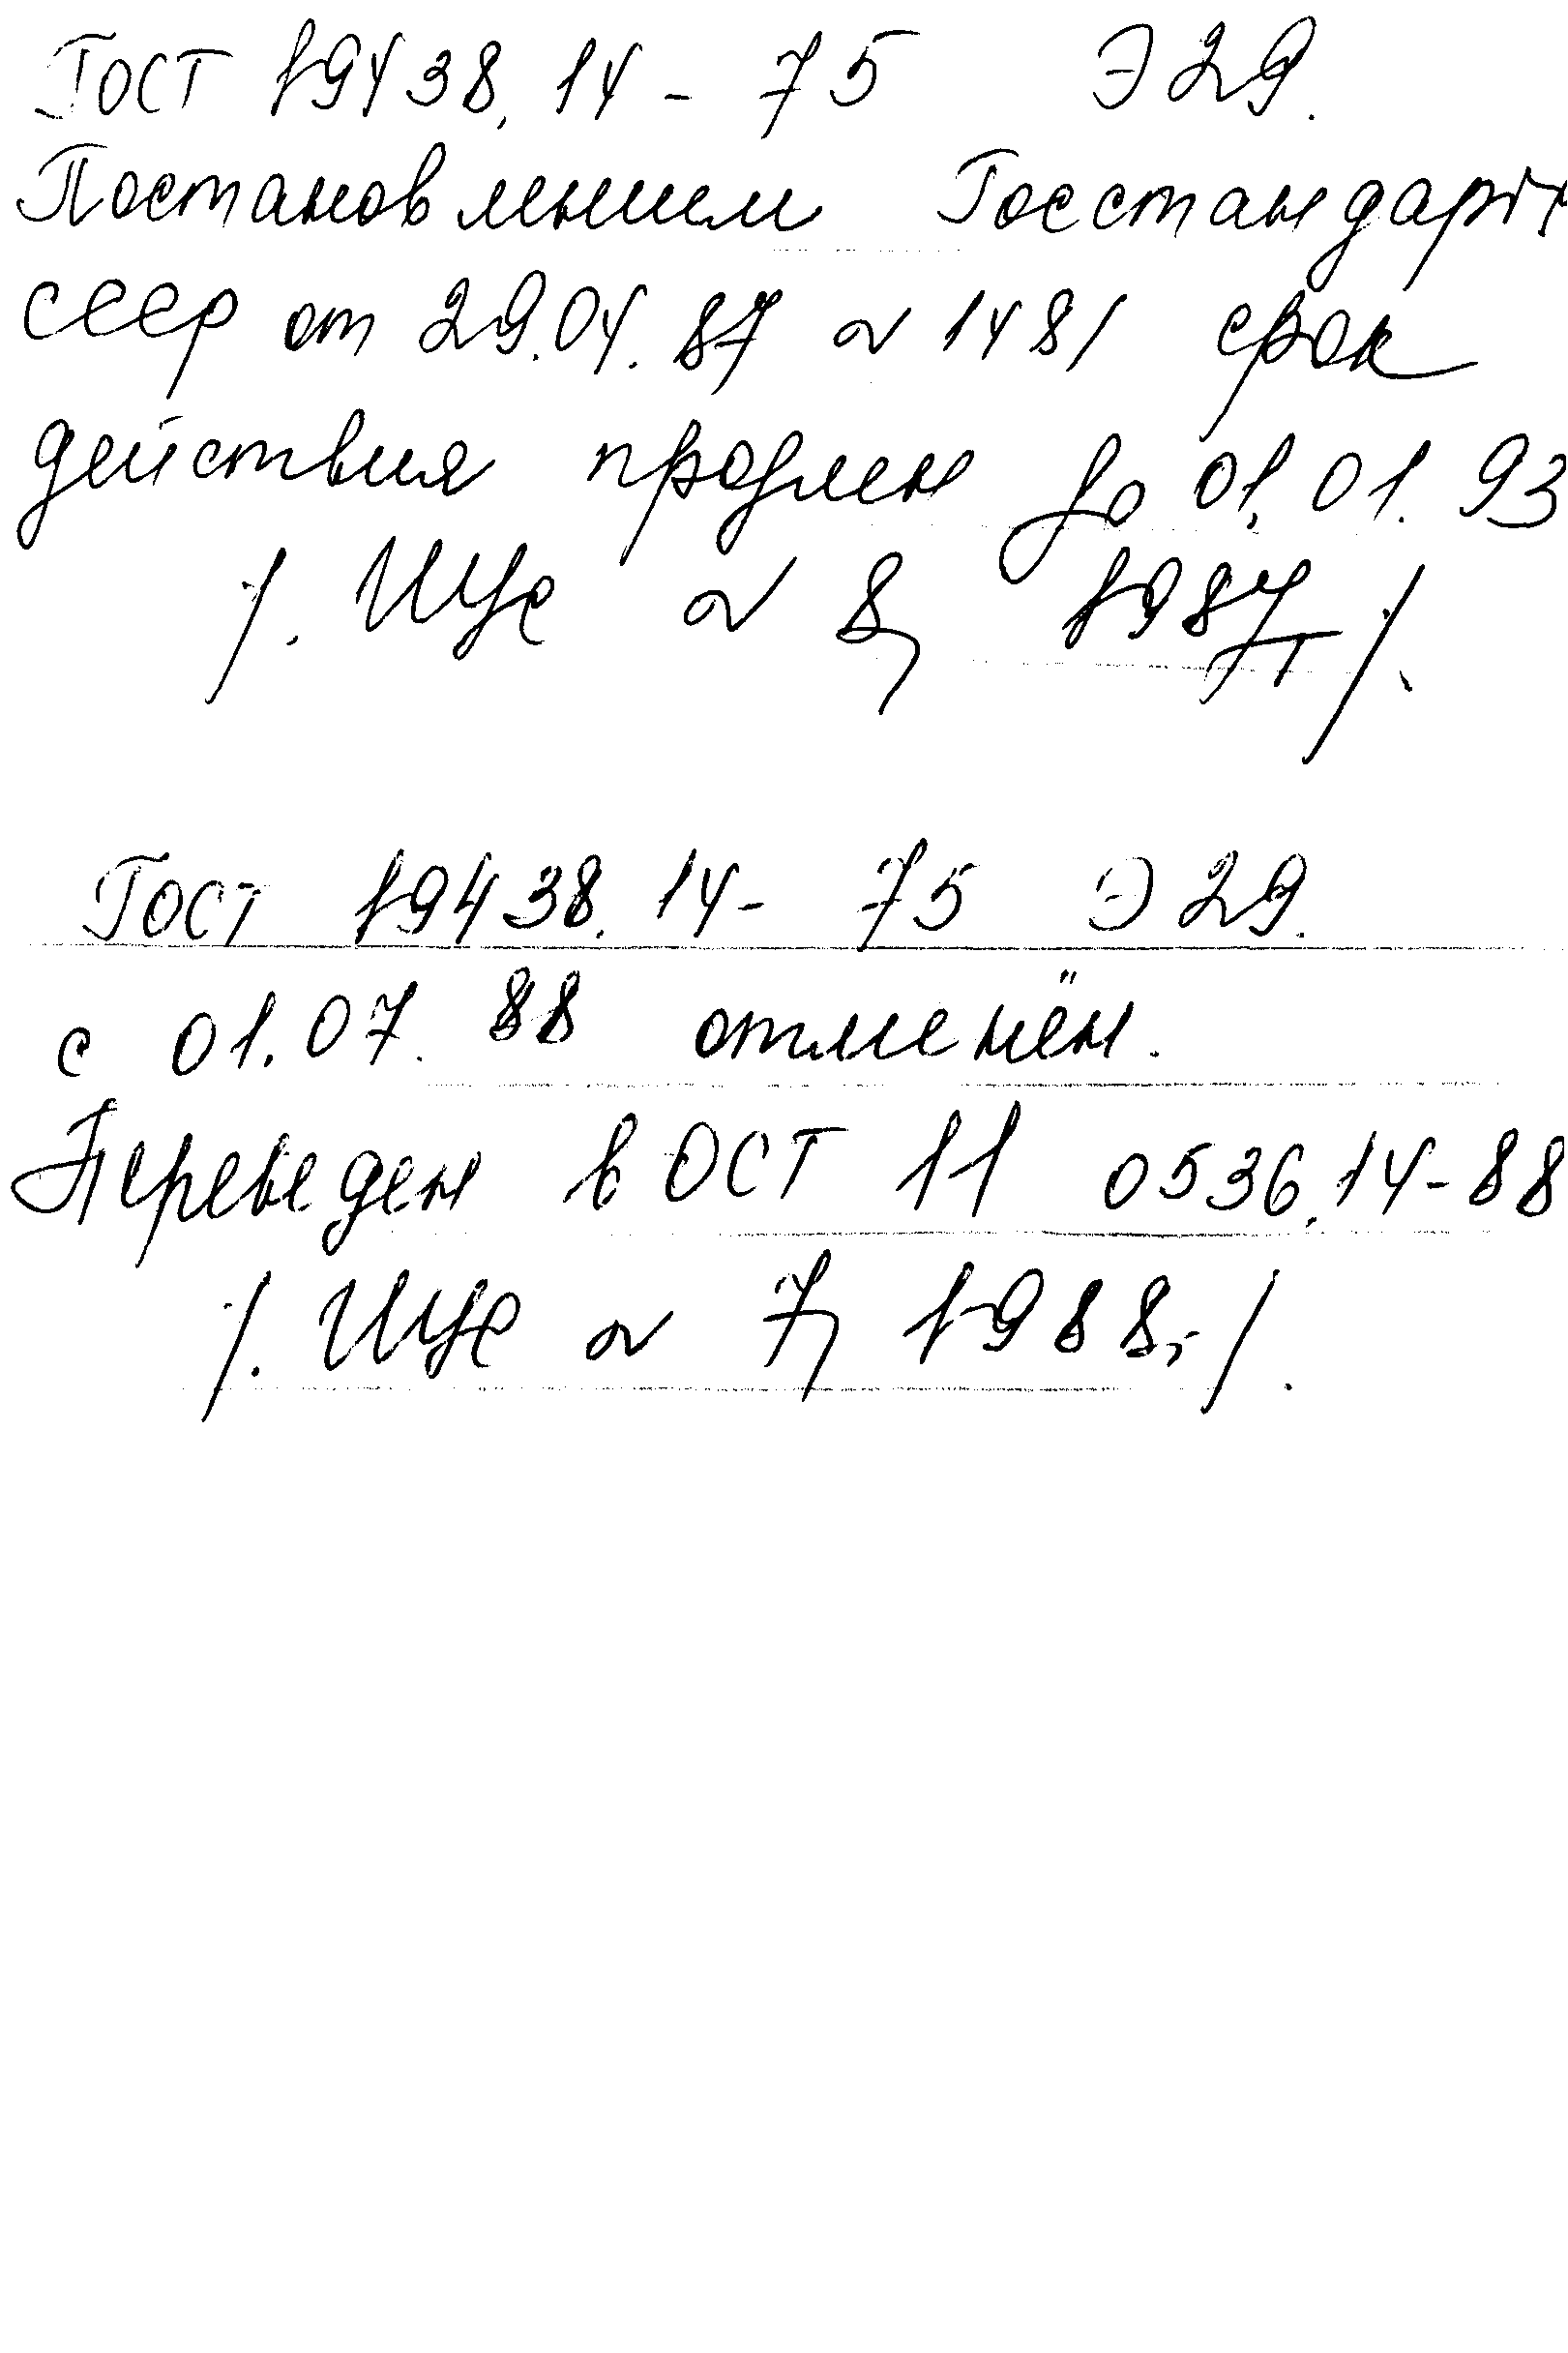 ГОСТ 19438.14 - 75 Э29.
Постановлением Госстандарта
СССР от 29.04.87 № 1481 срок
действия продлен до 01.01.93
/. ИУС № 8, 1987г/.
ГОСТ 19438.14 - 75 Э29.
с 01.07.88 отменён.
Переведен в ОСТ 11 0536.14-88
/. ИУС № 7, 1988г/.